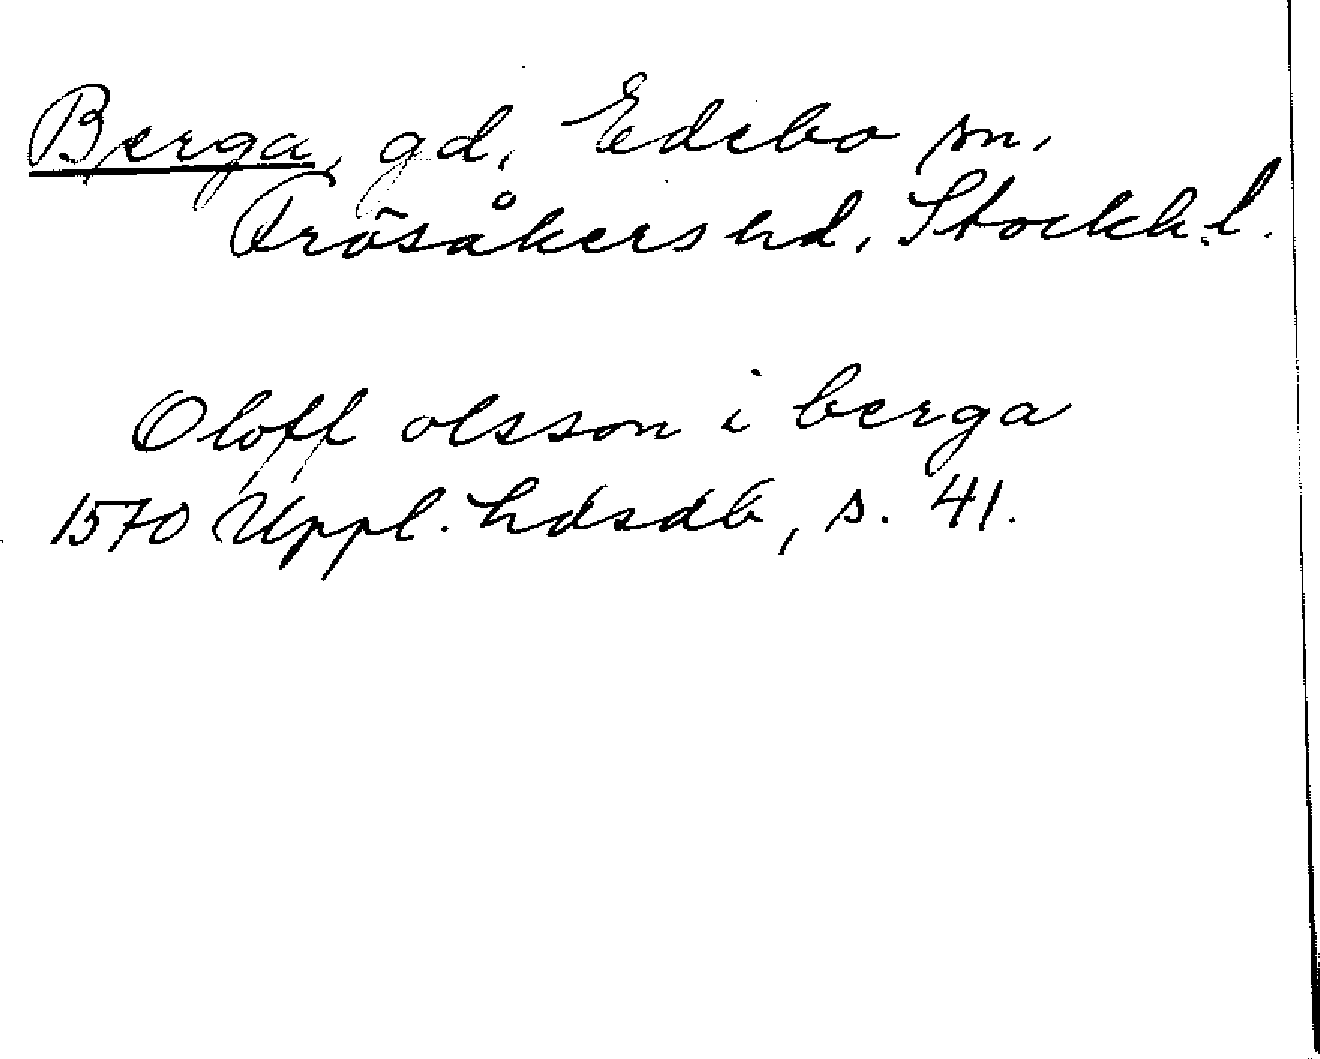 Berga, gd, Edebo sn,
Frösåkers hd, Stockh. l.
Oloff olsson i berga
1570 Uppl. hdsdb, s. 41.